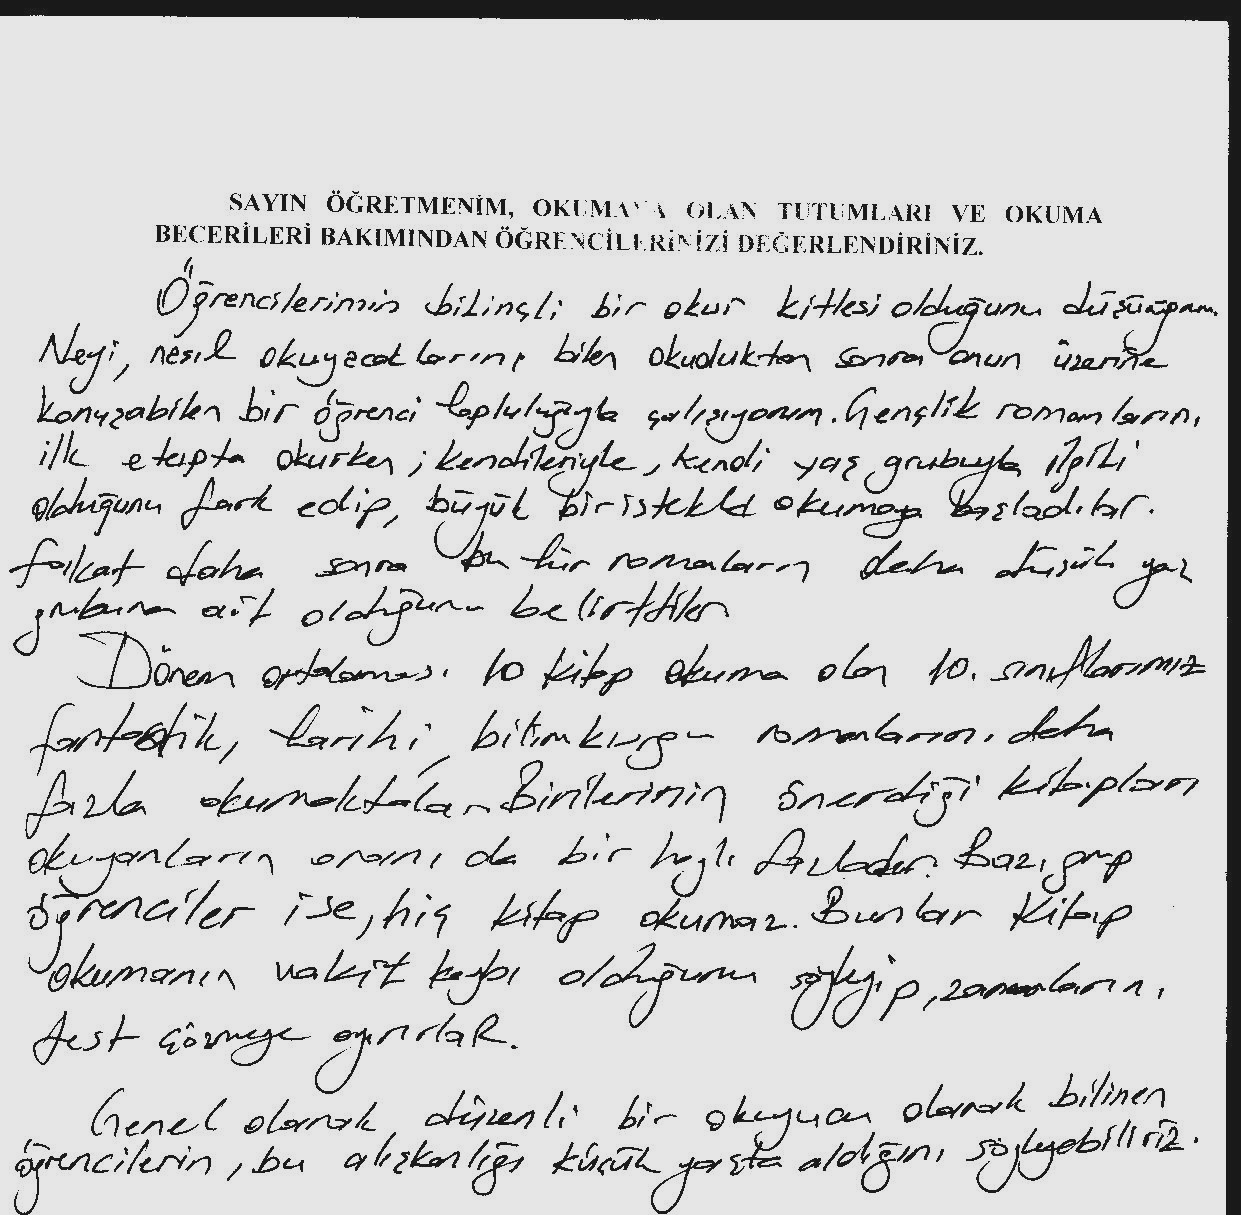 SAYIN ÖĞRETMENİM, OKUMAYA OLAN TUTUMLARI VE OKUMA
BECERİLERİ BAKIMINDAN ÖĞRENCİLERİNİZİ DEĞERLENDİRİNİZ.
Öğrencilerimin bilinçli bir okur kitlesi olduğunu düşünüyorum.
Neyi, nasıl okuyacaklarını bilen okuduktan sonra onun üzerine
konuşabilen bir öğrenci topluluğuyla çalışıyorum. Gençlik romanlarını
ilk etapta okurken ; kendileriyle, kendi yaş grubuyla ilgili
olduğunu fark edip, büyük bir istekle okumaya başladılar.
fakat daha sonra bu tür romanların daha düşük yaş
grubuna ait olduğunu belirttiler
Dönem ortalaması 10 kitap okuma olan 10. sınıflarımız
fantastik, tarihi, bilimkurgu romanlarını daha
fazla okumaktalar. Birilerinin önerdiği kitapları
okuyanların oranı da bir hayli fazladır. Bazı grup
öğrenciler ise, hiç kitap okumaz. Bunlar kitap
okumanın vakit kaybı olduğunu söyleyip, zamanlarını
test çözmeye ayırırlar.
Genel olarak düzenli bir okuyucu olarak bilinen
öğrencilerin, bu alışkanlığı küçük yaşta aldığını söyleyebiliriz.